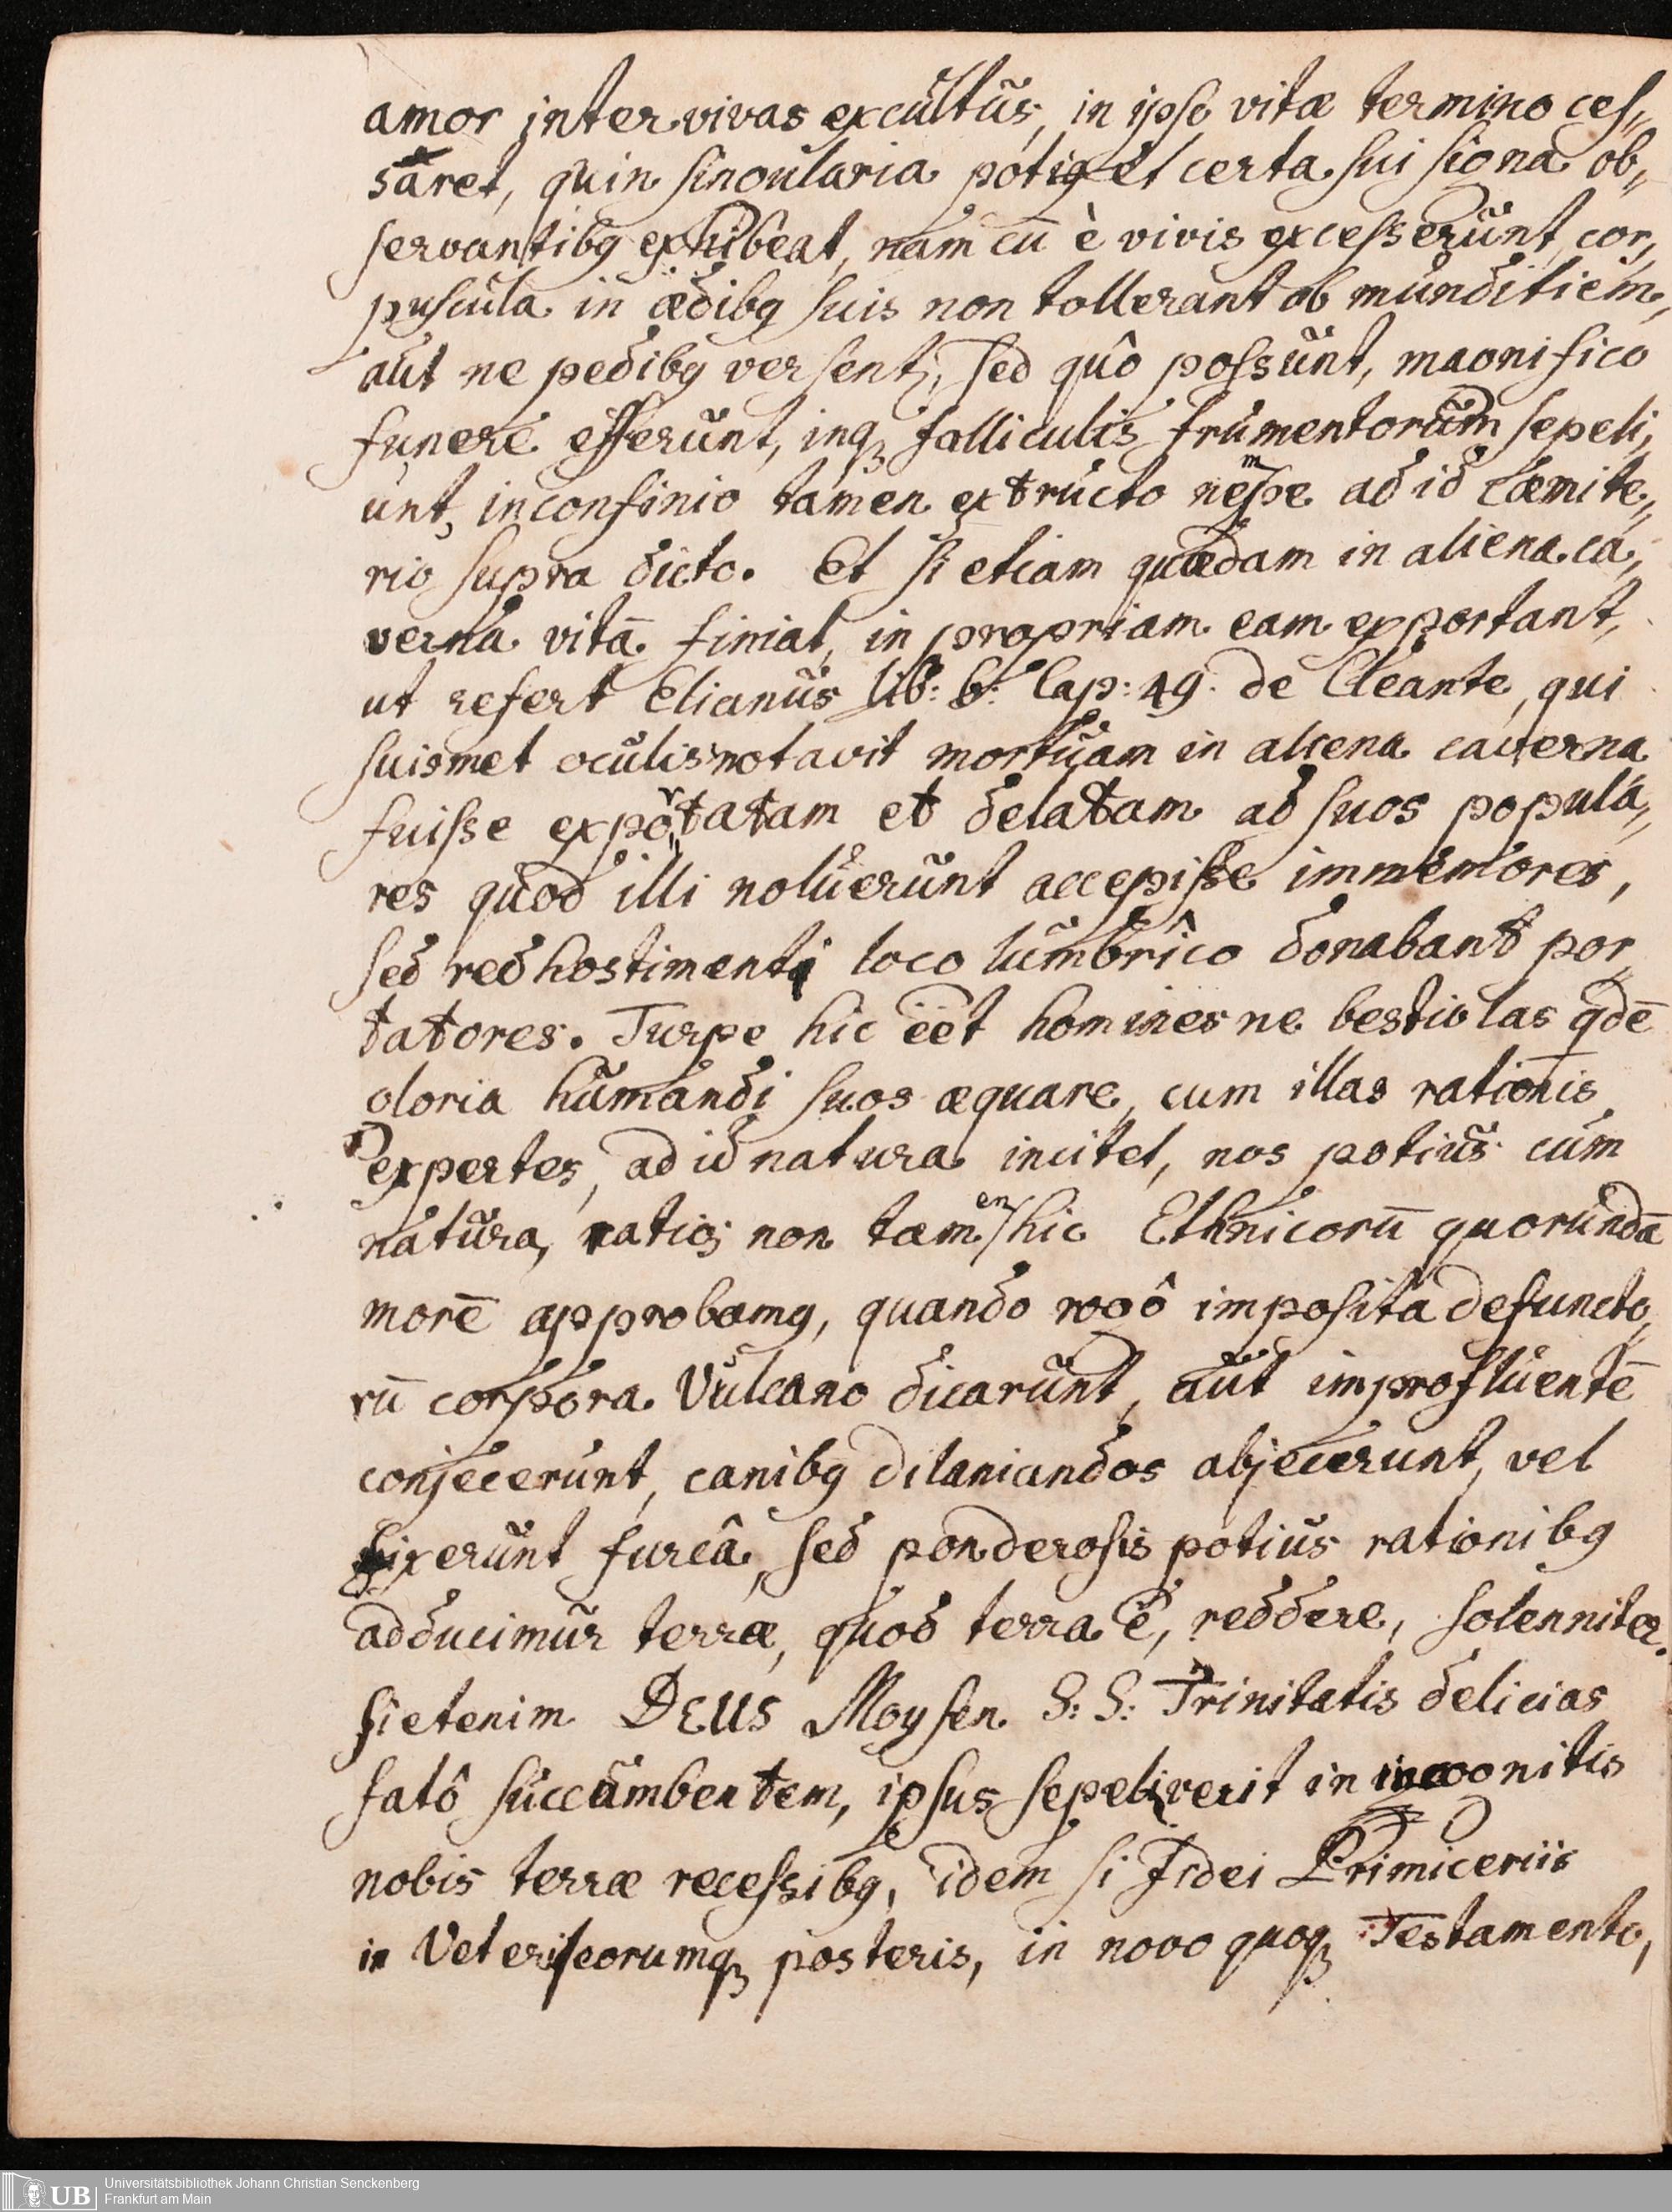 amor inter vivas excultus, in ipso vitæ termino ces„
saret, quin singularia potiꝰ et certa sui signa ob„
servantibꝰ exhibeat, nam cū è vivis excesserunt, cor„
puscula in ædibꝰ suis non tollerant ob munditiem,
aut ne pedibꝰ versentʳ, sed quô possunt, magnifico
funere efferunt, inqꝫ folliculis frumentorum sepeli„
unt, in confinio tamen extructo nempe ad id Cœmite„
rio supra dicto. Et si etiam quædam in aliena ca„
verna vitā finiat, in propriam eam exportant,
ut refert Elianus lib: 6: Cap: 49. de Cleante, qui
suismet oculis notavit mortuam in aliena caverna
fuisse exportatam et delatam ad suos popula„
res quod illi noluerunt accepisse immemores,
sed redhostimenti loco lumbrico donabant por„
tatores. Turpe hic eēt homines ne bestiolas qdē
gloria humandi suos æquare, cum illas rationis
expertes, ad id natura incitet, nos potius cum
natura, ratio; non tamen hic Ethnicorū quorundā
morē approbamꝰ, quando rogô imposita defuncto„
rū corpora Vulcano dicarunt, aut in profluentē
conjecerunt, canibꝰ dilaniandos abjecerunt, vel
fixerunt furcâ, sed ponderosis potius rationibꝰ
adducimur terræ, quod terra ē, reddere, solenniter.
si etenim DEUS Moysen S: S: Trinitatis delicias
fatô succumbentem, ipsus sepeliverit in incognitis
nobis terræ recessibꝰ, idem si Fidei Primiceriis
in Veteri eorumqꝫ posteris, in novo quoqꝫ Testamento,
Universitätsbibliothek Johann Christian Senckenberg
UB Frankfurt am Main